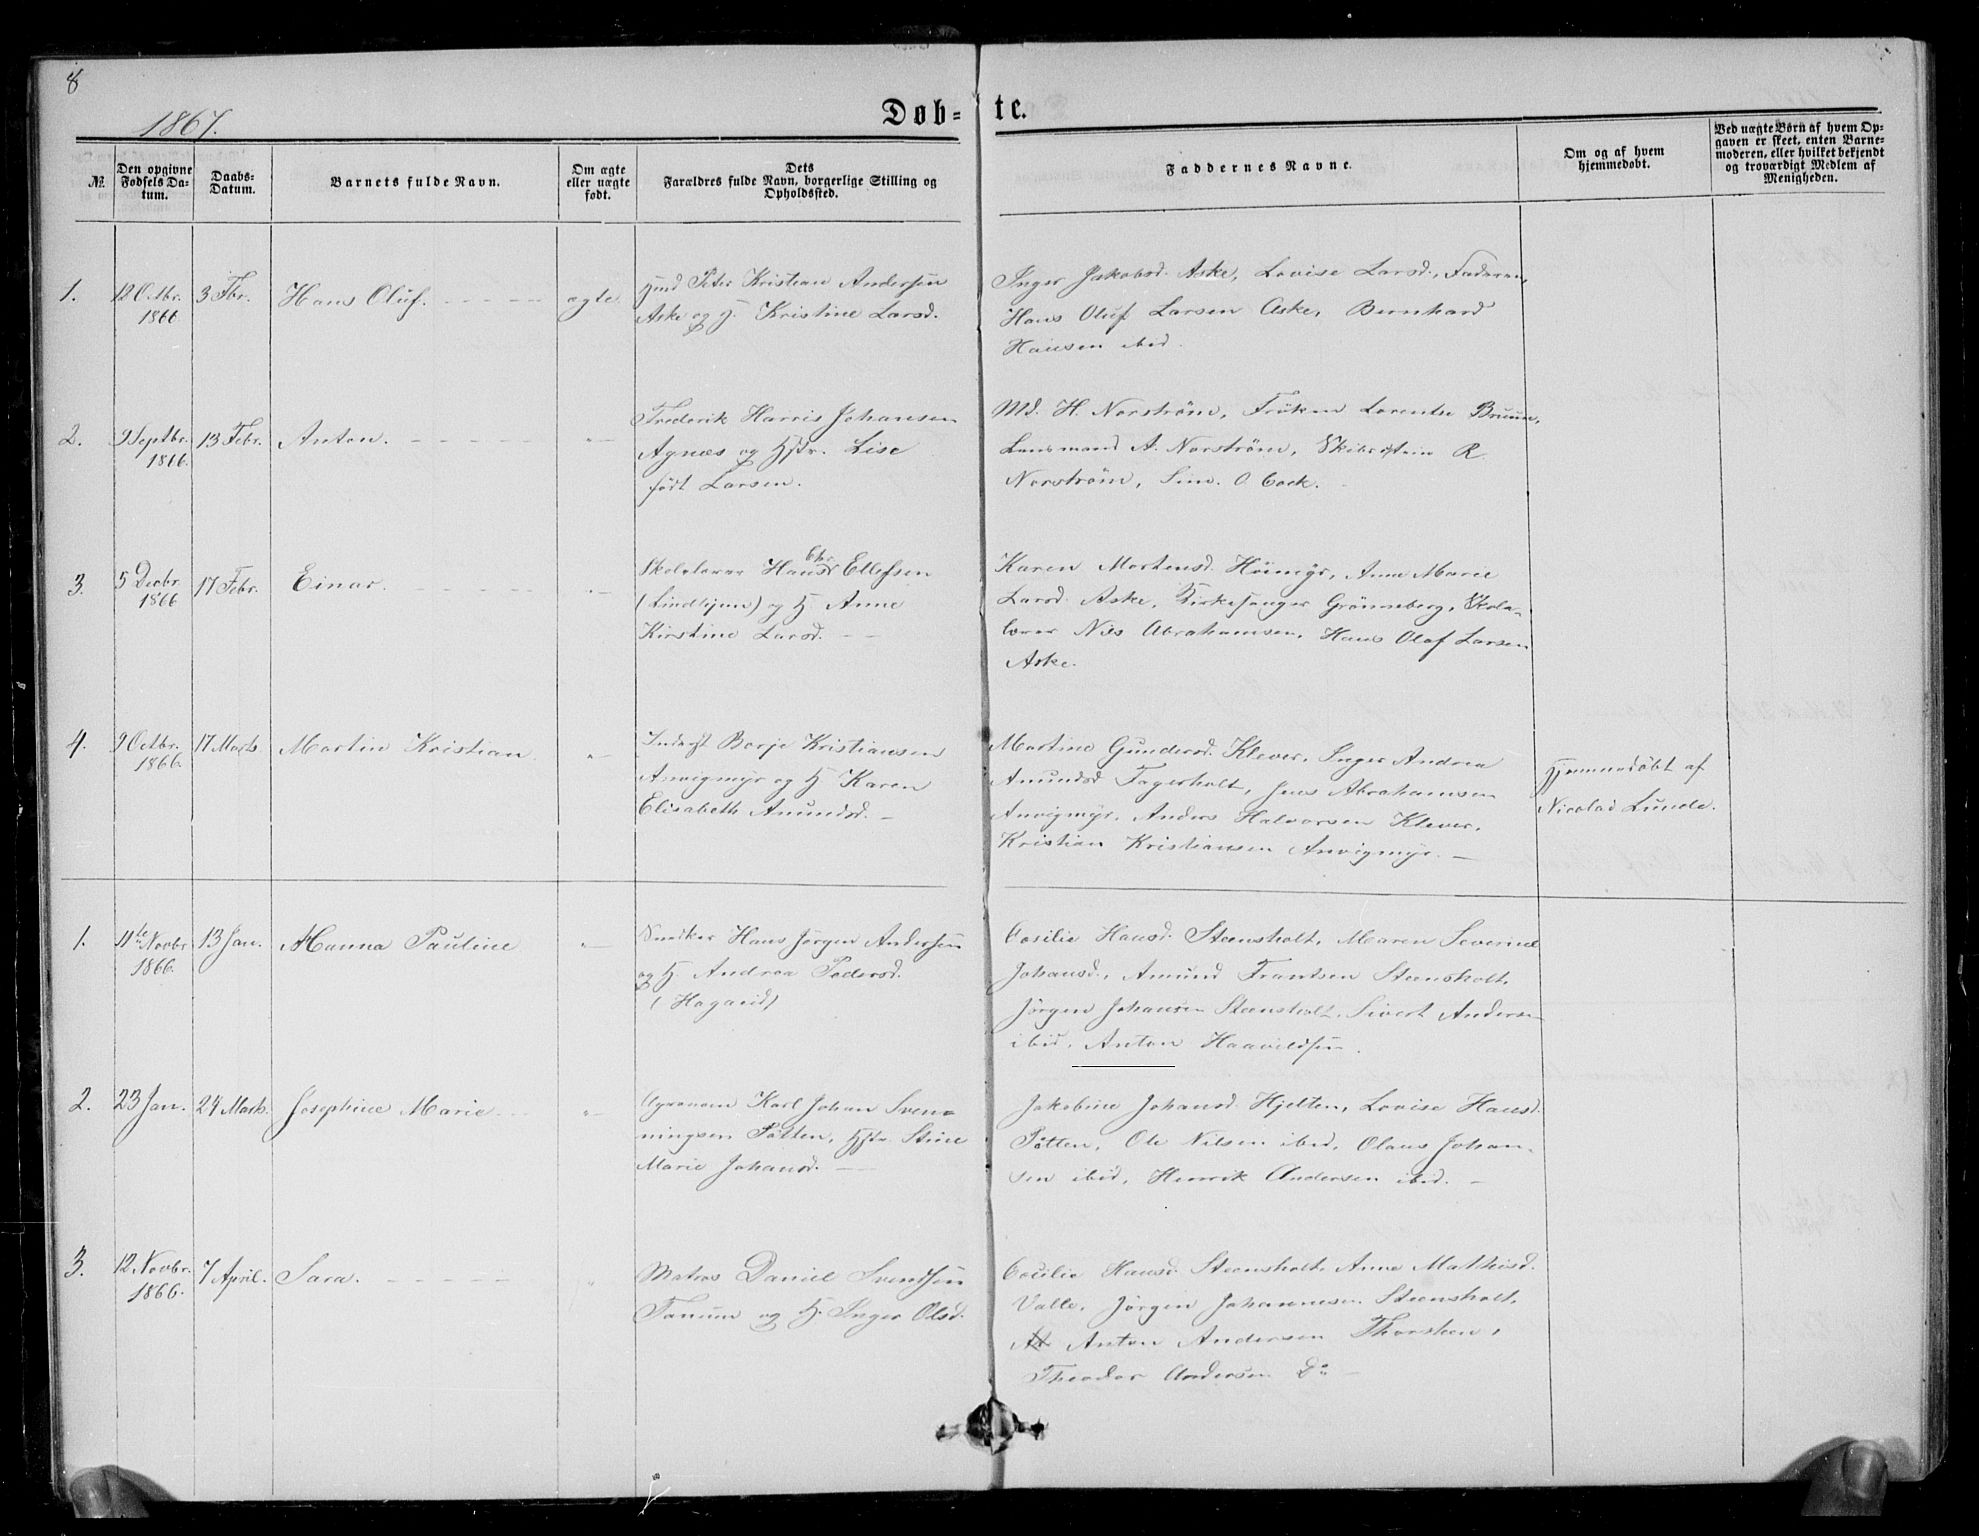 8
1867.
Døb-
te.
№.
Den opgivne
Fødsels Da-
tum.
Daabs-
Datum.
Barnets fulde Navn.
Om ægte
eller uægte
født.
Dets
Forældres fulde Navn, borgerlige Stilling og
Opholdssted.
Faddernes Navne.
Om og af hvem
hjemmedøbt.
Ved uægte Børn af hvem Op-
gaven er skeet, enten Barne-
moderen, eller hvilket bekjendt
og troværdigt Medlem af
Menigheden.
1.
12 Octbr.
1866
3 Fbr.
Hans Oluf.
ægte
Peter Kristian Andersen
Aske og H. Kristine Larsd.
Inger Jakobsd. Aske, Lovise Larsd., Faderen,
Hans Oluf Larsen Aske, Bernhard
Hansen ibid.
2.
9 Septbr.
1866.
13 Febr.
Anton.
"
Frederik Harris Johansen
Agnæs og Hstr. Lise
født Larsen.
Md. H. Norstrøm, Frøken Lorentze Bruun,
Lensmand A. Norstrøm, R.
Norstrøm, Sim. O. Cock.
3.
5 Decbr
1866
17 Febr.
Einar.
"
Chr.
Skolelærer Hans Ellefsen
(Lindlijan) og H. Anne
Kirstine Larsd.
Karen Mortensd. Høimyr, Anne Marie
Larsd. Aske, Kirkesanger Grønneberg, Skole-
lærer Nils Abrahamsen, Hans Olaf Larsen
Aske.
4.
9 Octbr.
1866.
17 Marts
Martin Kristian
"
Inderst Borje Kristiansen
Anvigmyr og H. Karen
Elisabeth Amundsd.
Martine Gundersd. Klever, Inger Andrea
Amundsd Fagerholt, Jens Abrahamsen
Anvigmyr, Anders Halvorsen Klever,
Kristian Kristiansen Anvigmyr.
Hjemmedøbt af
Nicolai Lunde.
1.
11te Novbr
1866.
13 Jan.
Hanna Pauline
"
Snedker Hans Jørgen Andersen
og H. Andrea Pedersd.
(Hagaeid)
Cecilie Hansd. Steensholt, Maren Severine
Johansd., Amund Frantsen Steensholt,
Jørgen Johansen Steensholt, Sivert Andersen
ibid, Anton Haavildsen.
2.
23 Jan.
24 Marts.
Josephine Marie
"
Karl Johan Sven-
ningsen Pøtten, Hstr. Stine
Marie Johansd.
Jakobine Johansd. Hjelten, Lovise Hansd.
Pøtten, Ole Nilsen ibid, Olaus Johan-
sen ibid, Henrik Andersen ibid.
3.
12 Novbr.
1866.
7 April.
Sara.
"
Matros Daniel Svendsen
Tanum og H. Inger Olsd.
Cecilie Hansd. Steensholt, Anne Mathisd.
Valle, Jørgen Johannesen Steensholt,
Anton Andersen Thorsteen,
Theodor Andersen Do